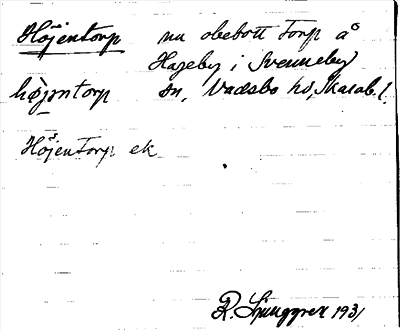 Höjentorp nu obebott torp å
Hageby i Svenneby
højəntorp sn, Vadsbo hd, Skarab. l.
Höjentorp ek
R. Ljunggren 1931